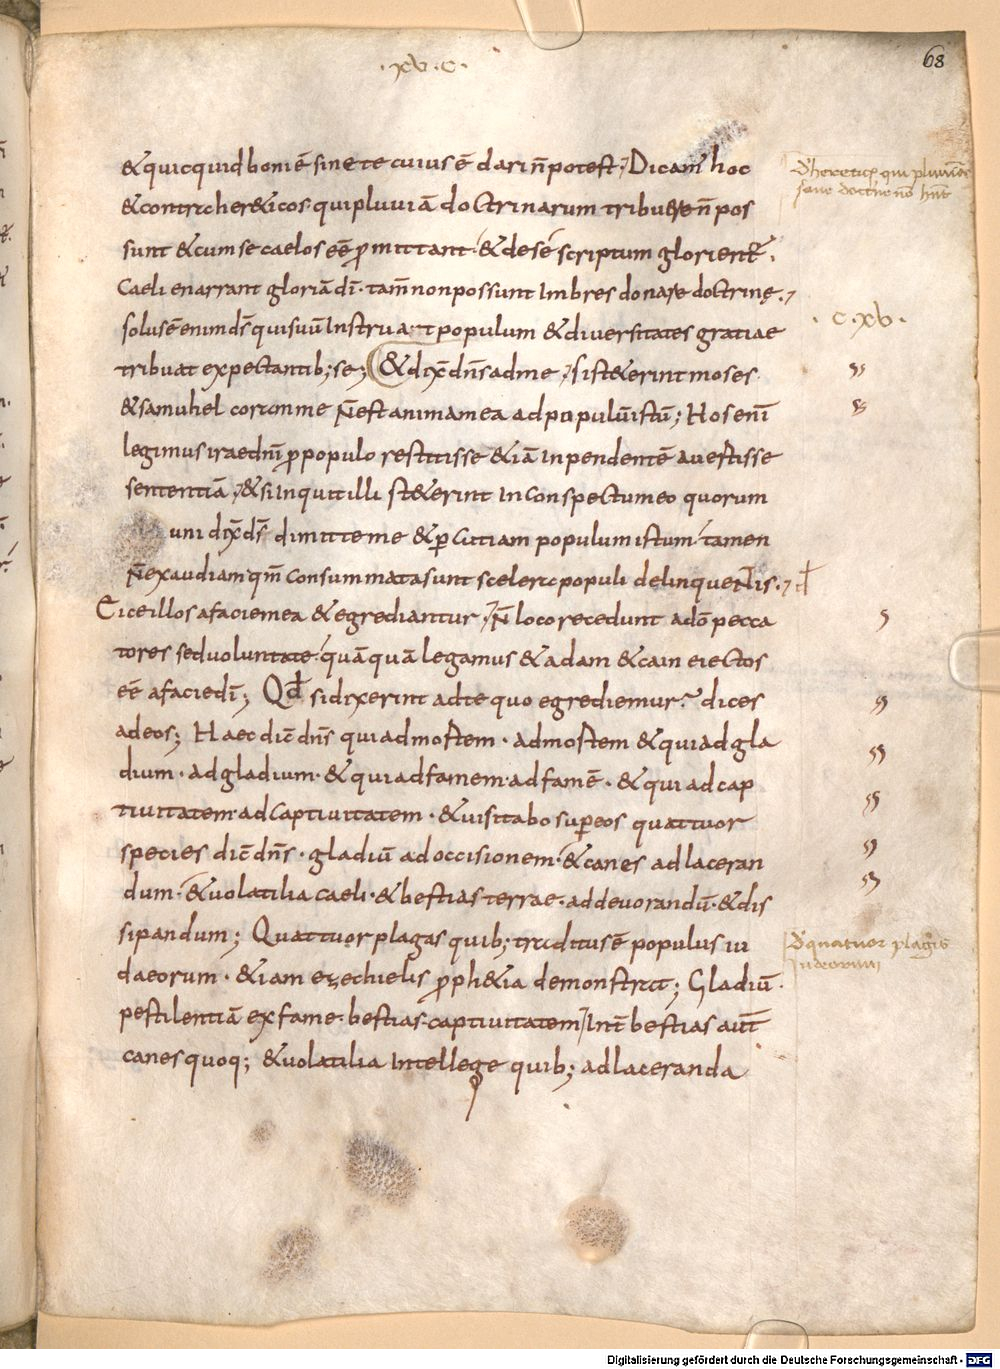 · xv · c ·
68
&quicquidboniē sine te cuiusē dari n̄potest; Dicam hoc
D'heretic̨ qui pluuiā
sane doctrinę n̄ hn̄t
&contraher&icos quipluuiā doctrinarum tribuere n̄ pos
sunt &cumse caelos eē ꝓmittant· &desé scriptum glorient᷑.
Caeli enarrant gloriā dī· tam̄ nonpossunt Imbres donare doctrinę.,
· C · xv ·
solusē enim dn̄s quisuū Instruat populum &diuersitates gratiae
tribuat expectantib; se; &dix̄ dn̄s adme, sist&erint moses
&samuhel coramme n̄est animamea adpopulū istū; Hos enī
legimus iraednī ꝓpopulo restitisse &iā Inpendentē auertisse
sententiā, &si Inquit illi st&erint Inconspectumeo quorum
uni dix̄ ds̄ dimitteme &ꝑcutiam populumistum tamen
n̄exaudiam qm̄ consummatasunt scelera populi delinquentis.,
Eiceillos afaciemea &egrediantur, n̄ loco recedunt adō pecca
tores seduoluntate· quāquā legamus &adam &cain eiectos
eē afaciedī; Qd̄ sidixerint adte quo egrediemur? dices
adeos; Haec dic̄ dn̄s quiadmortem· admortem &quiadgla
dium· adgladium· &quiadfamem· adfamē· &qui adcap
tiuitatem· adcaptiuitatem· &uisitabo suꝑeos quattuor
species dic̄ dn̄s· gladiū adoccisionem· &canes adlaceran
dum· &uolatilia caeli· &bestias terrae· addeuorandū· &dis
sipandum; Quattuor plagas quib; traditusē populus iu
D'quatuor plagis
Iudeorum
daeorum· &iam ezechielis ꝓph&ia demonstrat; Gladiū·
pestilentiā ex fame· bestias· captiuitatem, Int̄ bestias aut̄
canes quoq; &uolatilia Intellege quib; adlaceranda
Digitalisierung gefördert durch die Deutsche Forschungsgemeinschaft - DFG